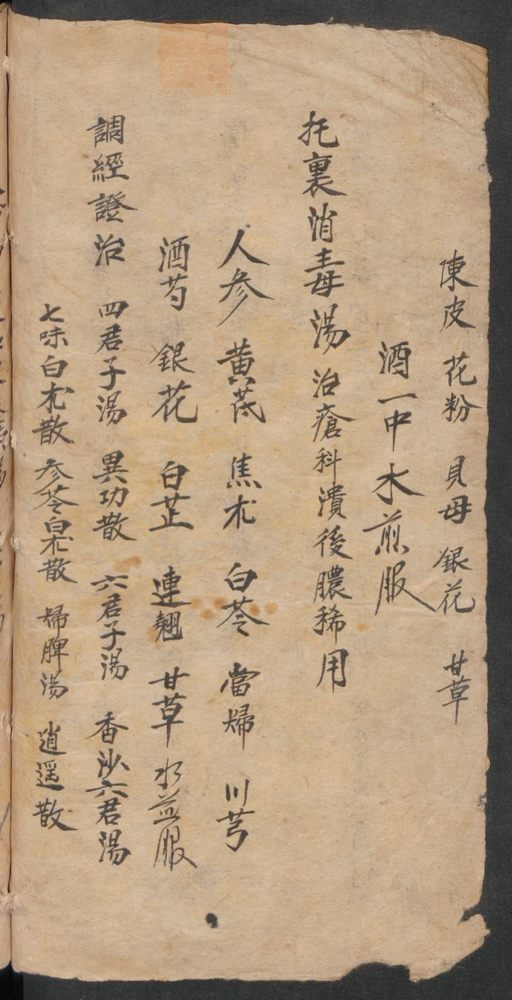 陳皮 花粉 貝母 銀花 甘草
酒一中水煎服
托裏消毒湯 治瘡科潰後膿稀用
人參 黃芪 焦朮 白苓 當歸 川芎
酒芍 銀花 白芷 連翹 甘草 水煎服
調經證治 四君子湯 異功散 六君子湯 香沙六君湯
七味白朮散 參苓白朮散 歸脾湯 逍遥散